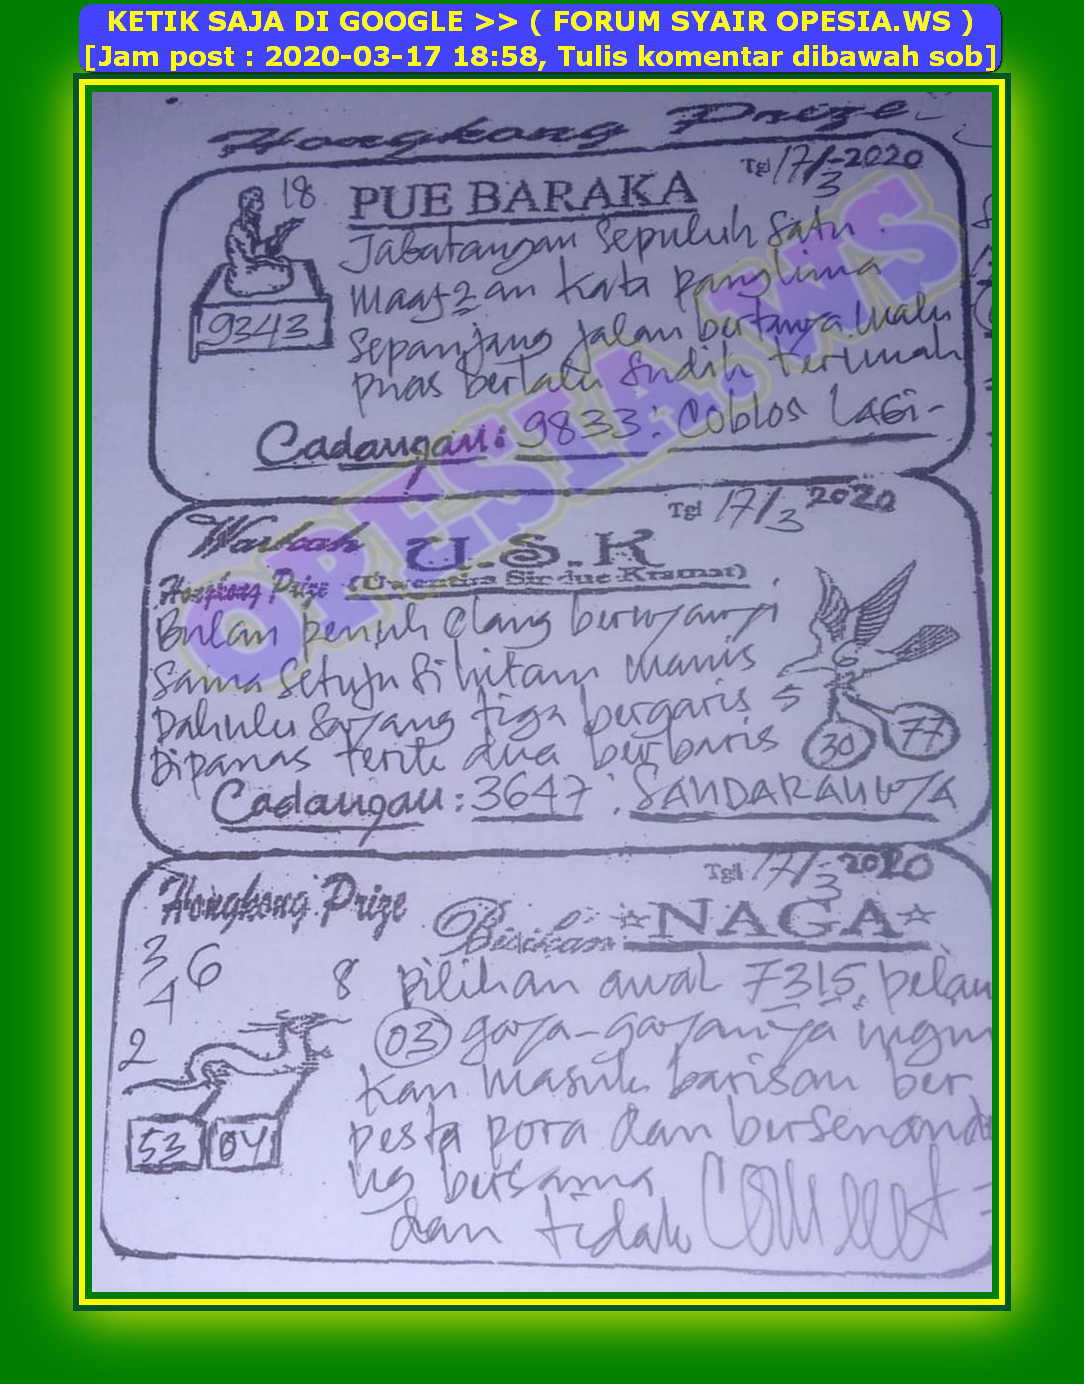 KETIK SAJA DI GOOGLE >> ( FORUM SYAIR OPESIA.WS )
[Jam post : 2020-03-17 18:58, Tulis komentar dibawah sob]
Hongkong Prize
Tgl 17/3-2020
18
PUE BARAKA
Jabatangan sepuluh satu
maaf2an kata panglima
9343
sepanjang jalan bertanya malu
puas berlalu sudah
Cadangan: 9833: Coblos LAGi-
OPESIA.WS
Tgl 17/3 2020
Warkah U.S.K
Hongkong Prize (Uwentira Sir due Kramat)
Bulan penuh elang bernyanyi
Sama setuju si hitam manis
Dahulu sayang tiga bergaris
6
5
Dipanas terik dua berbaris
30 77
Cadangan: 3647: SANDARANNYA
Tgl 17/3-2020
Hongkong Prize
Bisikan ☆NAGA☆
3 6
4
8
pilihan awal 7315, belau
2
03 gaya-gayanya ingin
kan masuk barisan ber
pesta pora dan bersenand
53 04
ug bersama
dan tidak